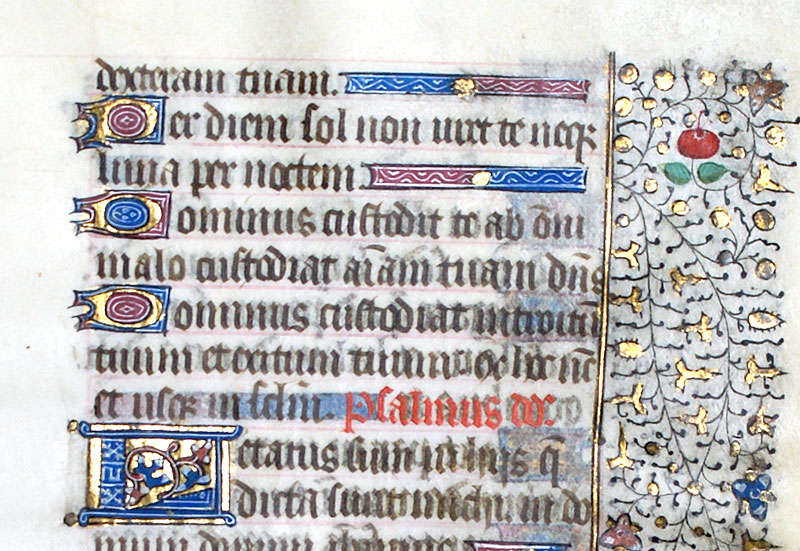 dexteram tuam.
Per diem sol non uret te neqꝫ
luna per noctem
Dominus custodit te ab om̄i
malo custodiat aīam tuam dn̄s
Dominus custodiat introitū
tuum et exitum tuum ex hoc nūc
et usqꝫ in sclm̄. Psalmus
Letatus sum in hijs q̄
dicta sunt michi in do
mum domini